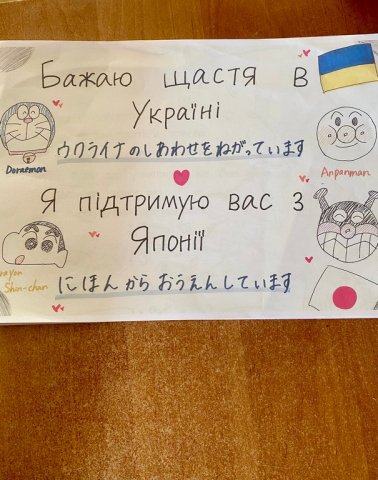 Бажаю щастя в
Україні
ウクライナのしあわせをねがっています
Doraemon
Anpanman
Я підтримую вас з
Японії
rayon
Shin-chan
にほんからおうえんしています